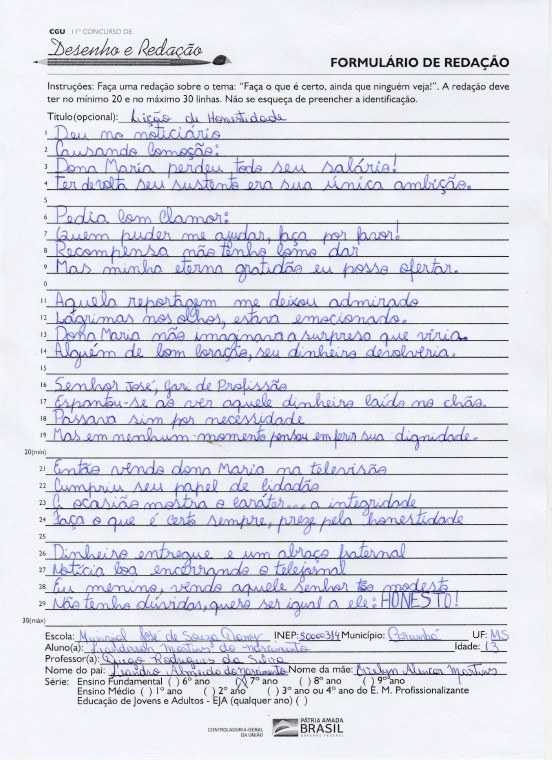 CGU 11º CONCURSO DE
Desenho e Redação
FORMULÁRIO DE REDAÇÃO
Instruções: Faça uma redação sobre o tema: "Faça o que é certo, ainda que ninguém veja!". A redação deve
ter no mínimo 20 e no máximo 30 linhas. Não se esqueça de preencher a identificação.
Título(opcional): Lição de Honestidade
1 Deu no noticiário
2 Causando comoção:
3 Dona Maria perdeu todo seu salário!
4 Ter de volta seu sustento era sua única ambição.
5
6 Pedia com clamor:
7 Quem puder me ajudar, faça por favor!
8 Recompensa não tenho como dar
9 Mas minha eterna gratidão eu posso ofertar.
0
11 Aquela reportagem me deixou admirado
12 Lágrimas nos olhos, estava emocionado.
13 Dona Maria não imaginava a surpresa que viria.
14 Alguém de bom coração, seu dinheiro devolveria.
15
16 Senhor José, gari de Profissão
17 Espantou-se ao ver aquele dinheiro caído no chão.
18 Passava sim por necessidade
19 Mas em nenhum momento pensou em ferir sua dignidade.
20(min)
21 Então vendo dona Maria na televisão
22 Cumpriu seu papel de cidadão
23 A ocasião mostra o caráter... a integridade
24 Faça o que é certo sempre, preze pela honestidade
25
26 Dinheiro entregue e um abraço fraternal
27 Notícia boa encerrando o telejornal
28 Eu menino, vendo aquele senhor tão modesto
29 Não tenho dúvidas, quero ser igual a ele: HONESTO!
30(máx)
Escola: Municipal José de Souza Damy INEP: 50000314 Município: Corumbá UF: MS
Aluno(a): Martins do nascimento Idade: 13
Professor(a): Diego Rodrigues da Silva
Nome do pai: Leandro Almeida do nascimento Nome da mãe: Evelyn Alencar Martins
Série: Ensino Fundamental ( ) 6º ano (X) 7º ano ( ) 8º ano ( ) 9º ano
Ensino Médio ( ) 1º ano ( ) 2º ano ( ) 3º ano ou 4º ano do E. M. Profissionalizante
Educação de Jovens e Adultos - EJA (qualquer ano) ( )
CONTROLADORIA-GERAL
DA UNIÃO
PÁTRIA AMADA
BRASIL
GOVERNO FEDERAL